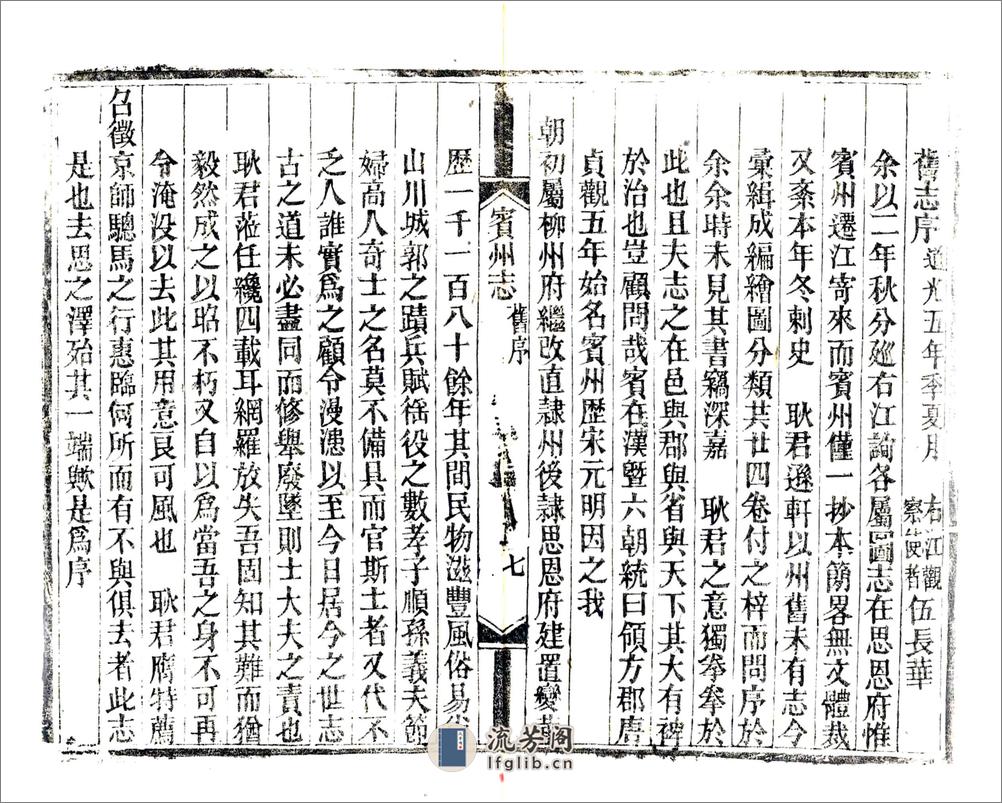 舊志序 道光五年季夏月 右江觀察使者 伍長華
余以二年秋分廵右江諭各屬圖志在思恩府惟
賓州遷江寄來而賓州僅一抄本簡畧無文體裁
又紊本年冬刺史 耿君遜軒以州舊未有志今
彙緝成編繪圖分類共廿四卷付之梓而問序於
余余時未見其書竊深嘉 耿君之意獨拳拳於
此也且夫志之在邑與郡與省與天下其大有裨
於治也豈顧問哉賓在漢曁六朝統曰領方郡唐
貞觀五年始名賓州歷宋元明因之我
朝初屬柳州府繼改直隷州後隷思恩府建置變
賓州志 舊序 七
歷一千一百八十餘年其間民物滋豐風俗易
山川城郭之蹟兵賦徭役之數孝子順孫義夫節
婦高人奇士之名莫不備具而官斯土者又代不
乏人誰實爲之顧令漫漶以至今日居今之世志
古之道未必盡同而修舉廢墜則士大夫之責也
耿君蒞任纔四載耳網羅放失吾固知其難而猶
毅然成之以昭不朽又自以爲當吾之身不可再
令淹没以去此其用意良可風也 耿君膺特薦
召徵京師驄馬之行惠臨何所而有不與俱去者此志
是也去思之澤殆其一端歟是爲序
流芳阁
lfglib.cn